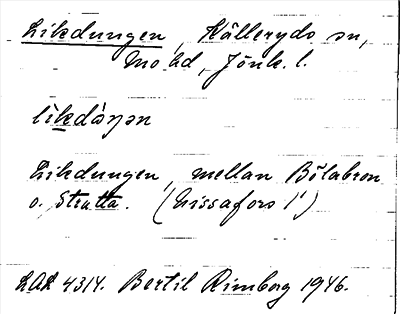 Likdungen, Källeryds sn,
Mo hd, Jönk. l.
lìkdáŋən
Likdungen, mellan Bölabron
o. Stratta. (Nissafors 1)
LAL 4314. Bertil Rimborg 1946.